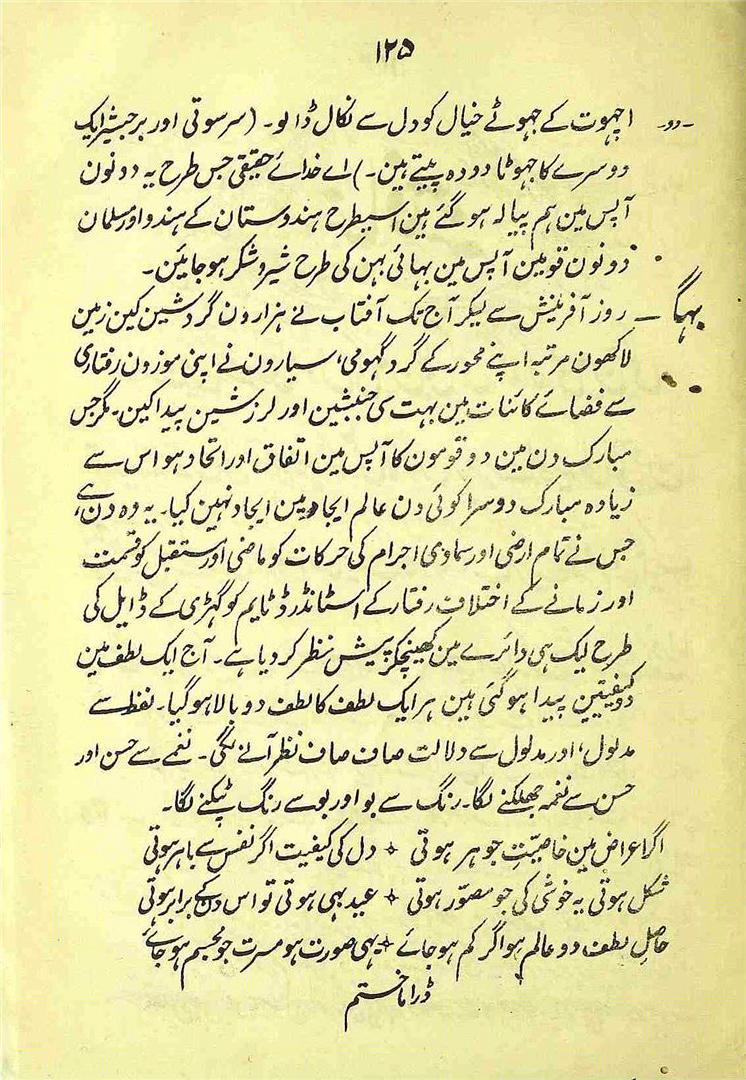 ۱۲۵
دو۔ اچہوت کے جہوٹے خیال کو دل سے نکال ڈالو۔ (سرسوتی اور برجیشر ایک
دوسرے کا جہوٹا دودہ پیتے ہین۔) اے خدائے حقیقی جس طرح یہ دونون
آپس مین ہم پیالہ ہو گئے ہین اسیطرح ہندوستان کے ہندو اور مسلمان
دونون قومین آپس مین بہائی بہن کی طرح شیر و شکر ہو جایئن۔
بہگا ۔ روز آفرینش سے لیکر آج تک آفتاب نے ہزارون گردشین کین زمین
لاکھون مرتبہ اپنے محور کے گرد گہومی، سیارون نے اپنی موزون رفتاری
سے فضائے کائنات مین بہت سی جنبشین اور لرزشین پیدا کین۔ مگر جس
مبارک دن مین دو قومون کا آپس مین اتفاق اور اتحاد ہو اس سے
زیادہ مبارک دوسرا کوئی دن عالم ایجاد مین ایجاد نہین کیا۔ یہ وہ دن ہے،
جس نے تمام ارضی اور سماوی اجرام کی حرکات کو ماضی اور مستقبل کو قسمت
اور زمانے کے اختلاف رفتار کے اسٹانڈرڈ ٹایم کو گہڑی کے ڈایل کی
طرح ایک ہی دائرے مین کھینچکر پیش نظر کر دیا ہے۔ آج ایک لطف مین
دو کیفیتین پیدا ہو گئی ہین ہر ایک لطف کا لطف دوبالا ہو گیا۔ لفظ سے
مدلول، اور مدلول سے دلالت صاف صاف نظر آنے لگی۔ نغمے سے حسن اور
حسن سے نغمہ جھلکنے لگا۔ رنگ سے بو اور بو سے رنگ ٹپکنے لگا۔
اگر اعراض مین خاصیّتِ جوہر ہوتی ٭ دل کی کیفیت اگر نفس سے باہر ہوتی
شکل ہوتی یہ خوشی کی جو مصوّر ہوتی ٭ عید بہی ہوتی تو اس دن کے برابر ہوتی
حاصلِ لطف دو عالم ہو اگر کم ہو جائے ٭ یہی صورت ہو مسرت جو مجسم ہو جائے
ڈراما ختم